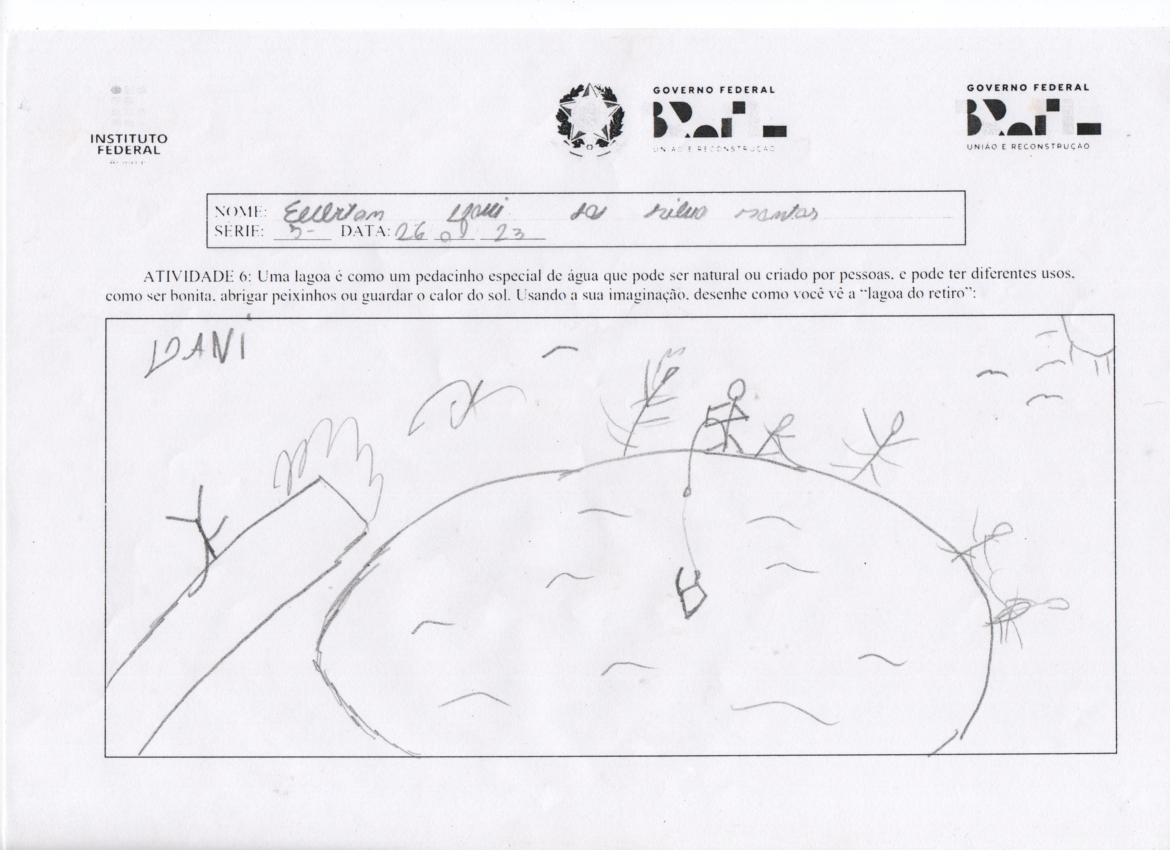 INSTITUTO
FEDERAL
GOVERNO FEDERAL
BRASIL
UNIÃO E RECONSTRUÇÃO
GOVERNO FEDERAL
BRASIL
UNIÃO E RECONSTRUÇÃO
NOME: da Silva santos
SÉRIE: 5- DATA: 26 23
ATIVIDADE 6: Uma lagoa é como um pedacinho especial de água que pode ser natural ou criado por pessoas, e pode ter diferentes usos,
como ser bonita, abrigar peixinhos ou guardar o calor do sol. Usando a sua imaginação, desenhe como você vê a “lagoa do retiro”:
DANI